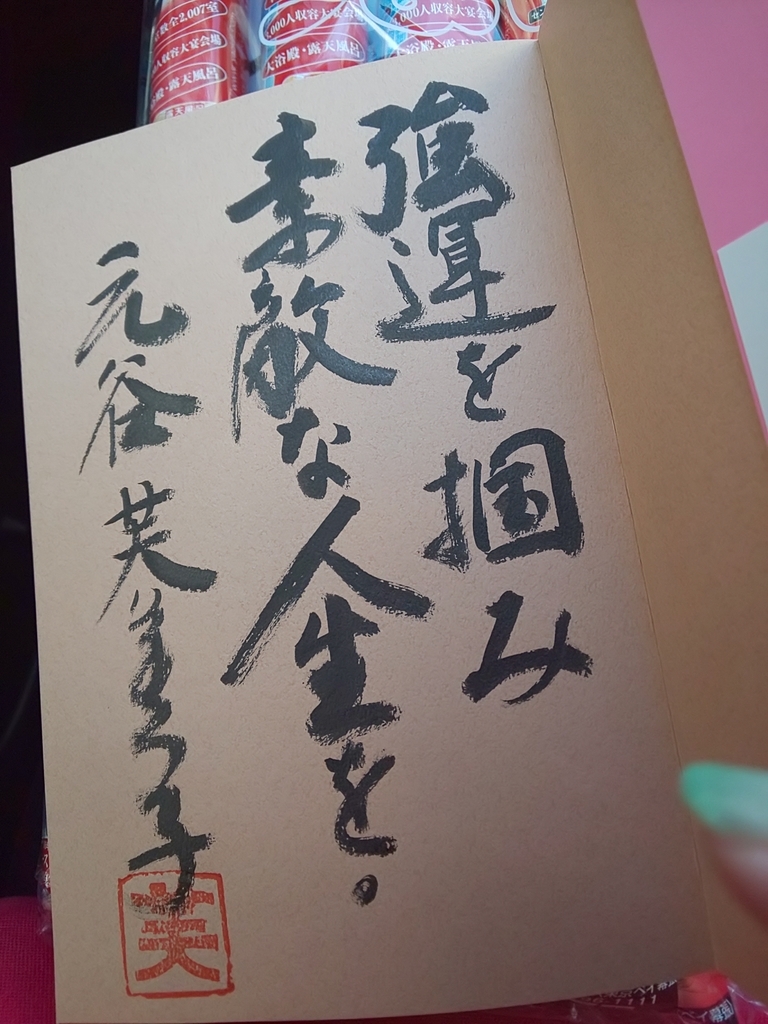 強運を掴み
素敵な人生を。
元谷芙美子
芙
全2,007室
000人収容大宴会場
大浴殿・露天風呂
人収容大宴会場
浴殿・露天風呂
,000人収容大宴会場
大浴殿・露天風呂